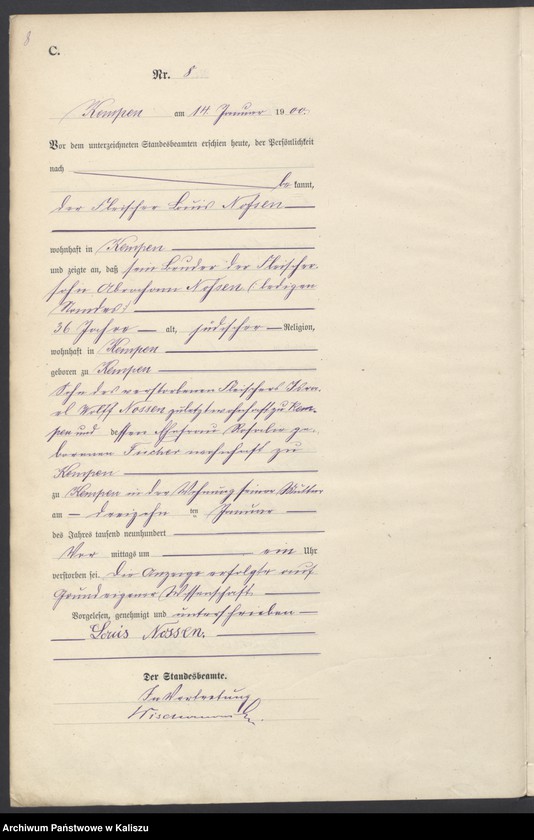 8
C.
Nr. 8
Kempen am 14 Januar 1900.
Vor dem unterzeichneten Standesbeamten erschien heute, der Persönlichkeit
nach
bekannt,
der Fleischer Louis Nossen
wohnhaft in Kempen
und zeigte an, daß sein Bruder der Fleischer
sohn Abraham Nossen (ledigen
Standes)
36 Jahre alt, jüdischer Religion,
wohnhaft in Kempen
geboren zu Kempen
Sohn des verstorbenen Fleischers Isra-
el Wolff Nossen zuletzt wohnhaft zu Kem-
pen und dessen Ehefrau Rosalie ge-
borenen Tucher wohnhaft zu
Kempen
zu Kempen in der Wohnung seiner Mutter
am dreizehn ten Januar
des Jahres tausend neunhundert
Vor mittags um ein Uhr
verstorben sei. Die Anzeige erfolgte auf
Grund eigener Wissenschaft.
Vorgelesen, genehmigt und unterschrieben
Louis Nossen.
Der Standesbeamte.
In Vertretung
Archiwum Państwowe w Kaliszu